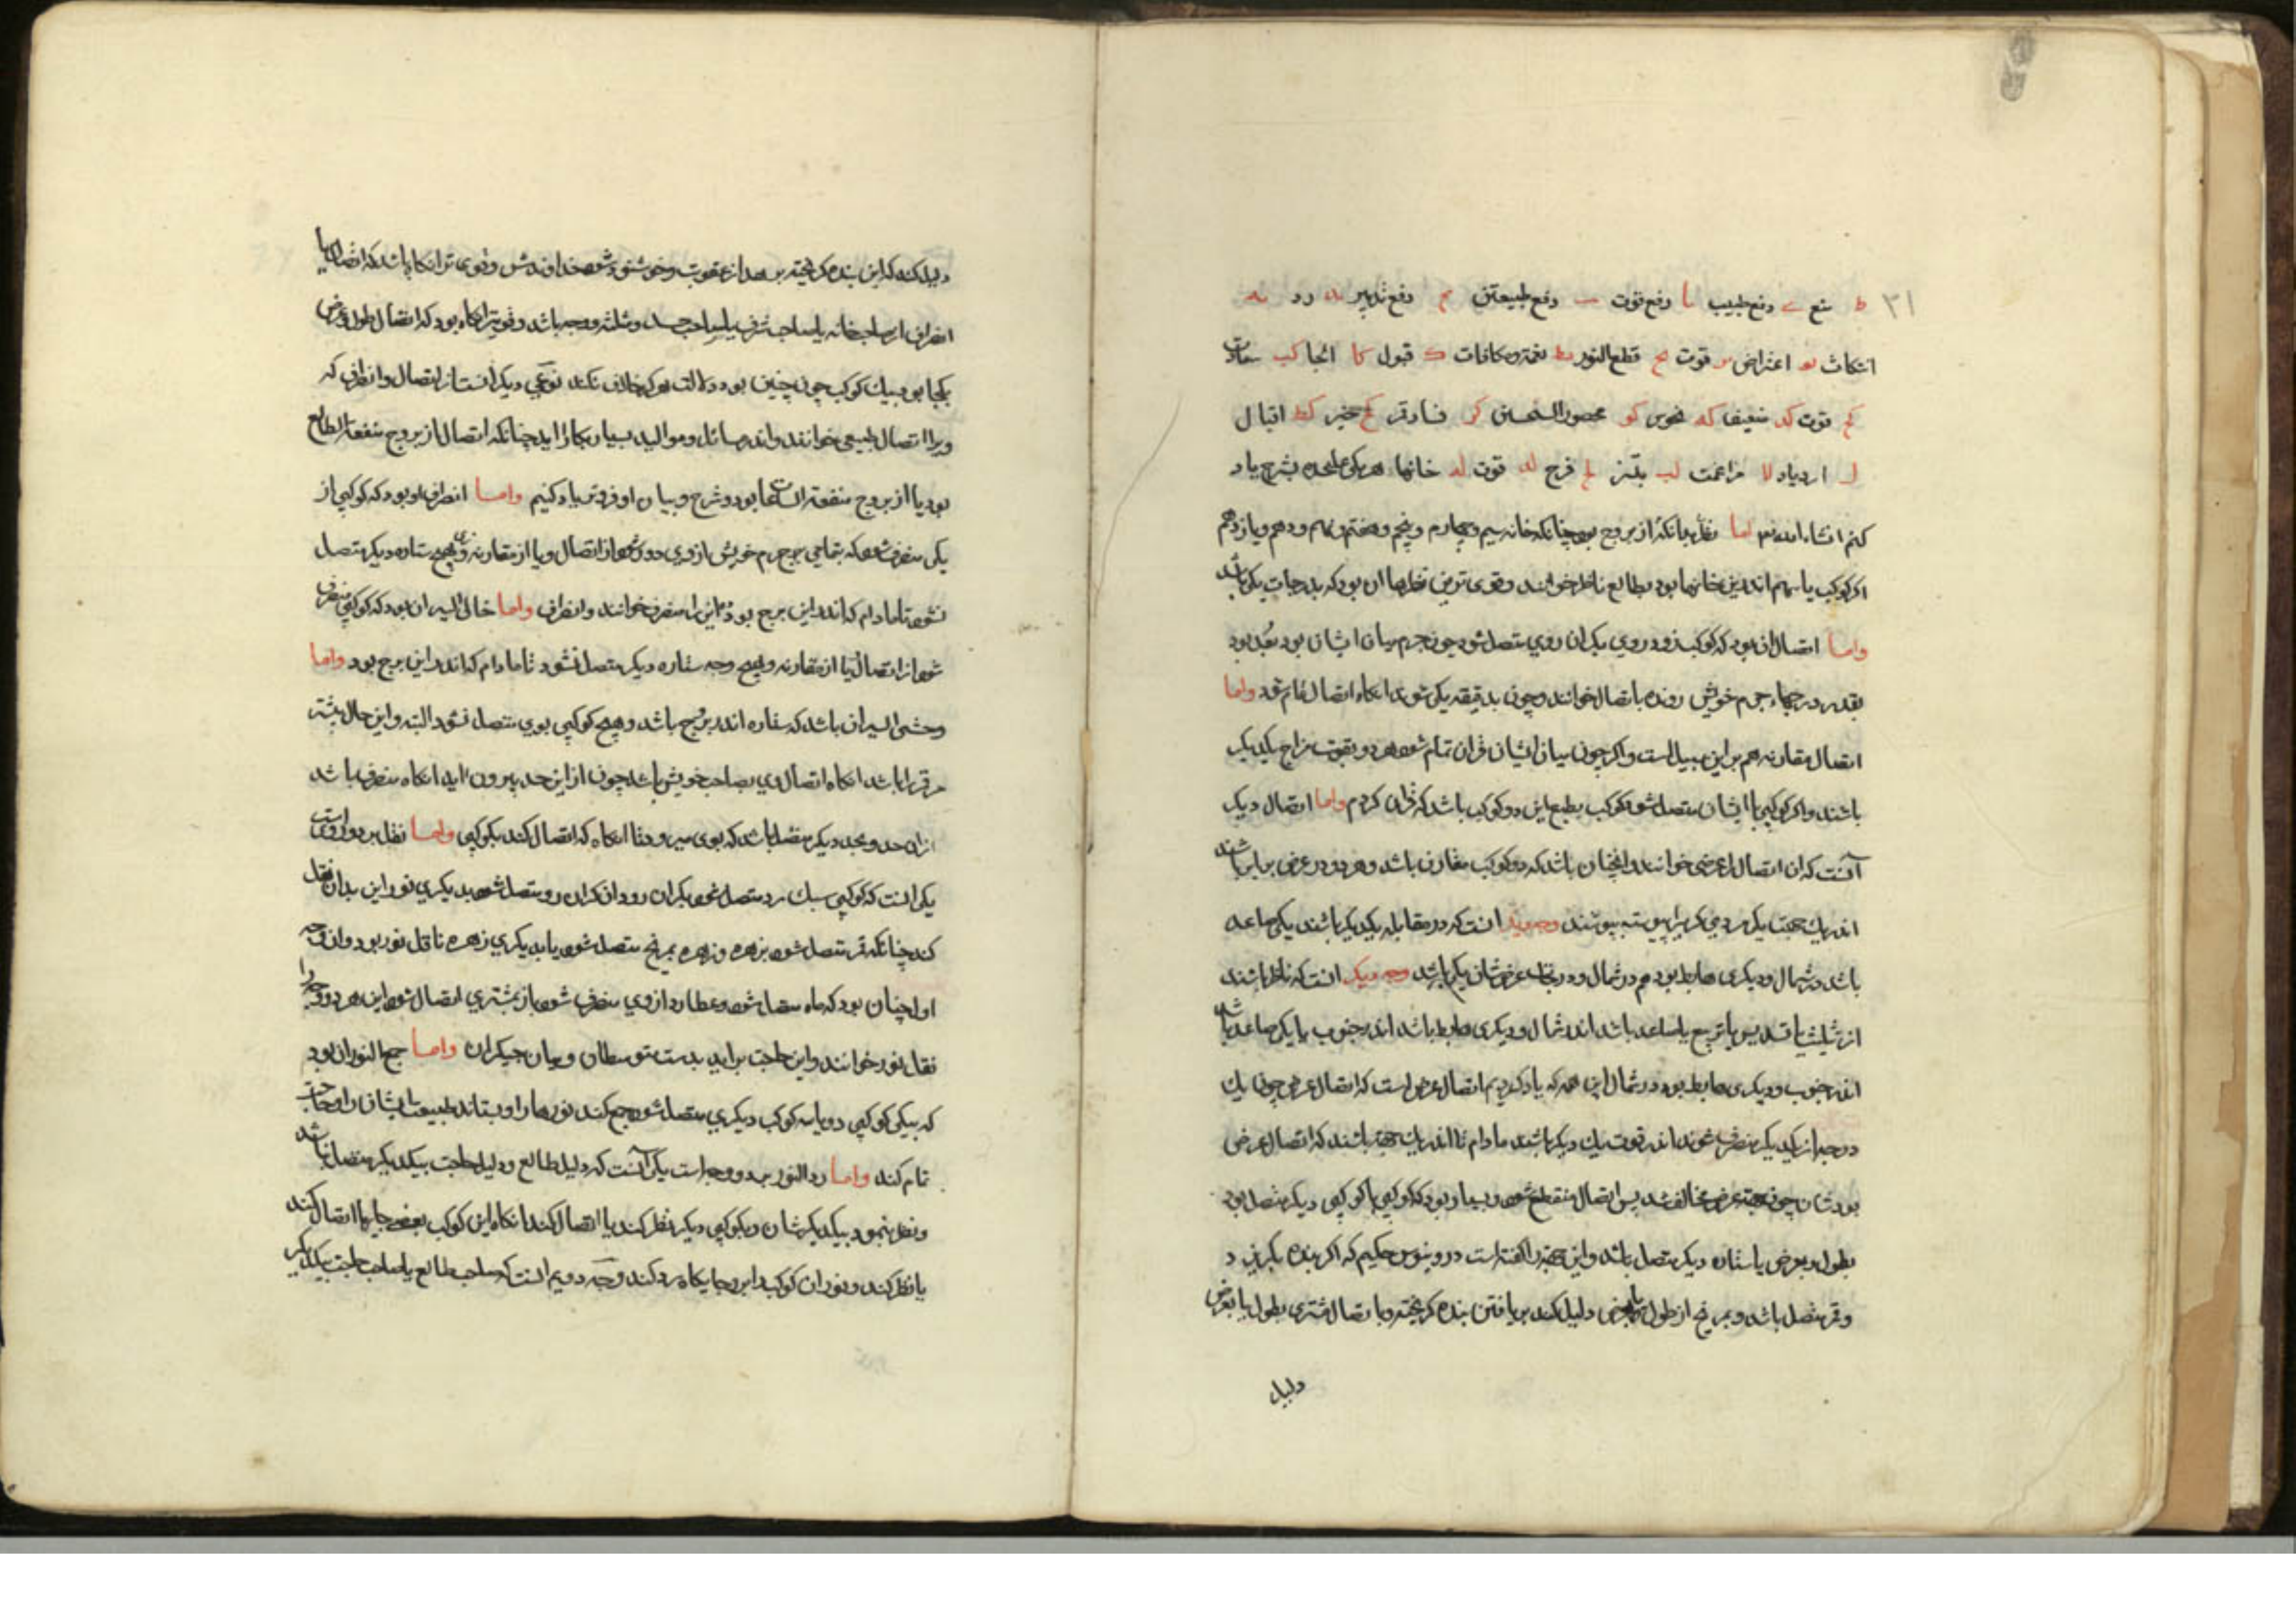 ۳۱
ط منع ی دفع طبیب یا دفع قوت یب دفع طبیعتین یج دفع تدبیر ید رد یه
انتکاث یو اعتراض یز قوت یح قطع النور یط نعمت و مکافات ک قبول کا کب
کج قوت کد ضعیف که نحوس کو محصور النحسین کز فساد قمر کح خیر کط اقبال
ل ازدیاد لا مزاعمت لب لج فرح لد قوت له خانها هر یکی علیحده بشرح یاد
کنم انشاء الله اما نظر بدانکه از بروج بود چنانکه خانه سیم و چهارم و پنجم و هفتم و نهم و دهم و یازدهم
اگر کوکب یا سهم اندرین خانها بود بطالع ناظر خوانند و قوی ترین نظرها آن بود که بدرجات یکی باشد
واما اتصال آن بود که کوکب زود روی بگران روی متصل شود چون جرم میان ایشان بود بعد بود
بقدر درجهاء جرم خویش رونده باتصال خوانند و چون بدقیقه یکی شوند آنگاه اتصال تمام شود واما
اتصال مقارنه هم برین سبیل است و اگر چون میان ایشان قران تمام شود هر دو بقوت مزاج یکدیگر
باشند و اگر کوکبی با ایشان متصل شود کوکب بطبع این دو کوکب باشد که قران کردم واما اتصال دیگر
آنست که آن اتصال را عرضی خوانند و آنچنان باشد که دو کوکب مقارن باشد و هر دو در عرض برابر باشند
اندر یک جهت یکی بر دیگری پیوسته بپیوندند وجه دیگر آنست که در مقابله یکدیگر باشند یکی صاعد
باشد در شمال و دیگری هابط بود هم در شمال و درجات عرض شان یکی باشد وجه دیگر آنست که ناظر باشند
از تثلیث یا تسدیس یا تربیع یا صاعد باشد اندر شمال و دیگری هابط باشد اندر جنوب یا یکی صاعد باشد
اندر جنوب و دیگری هابط بود در شمال این همه که یاد کردیم اتصال عرض است که اتصال عرض چون یک
درجه از یکدیگر منصرف شوند اندر قوت یک دیگر باشند مادام تا اندر یک جهت باشند که اتصال عرضی
بودشان چون جهت عرض مخالف شد پس اتصال منقطع شود و بسیار بود که کوکبی با کوکبی دیگر متصل بود
بطول و بعرض با ستاره دیگر متصل باشد و این جهت را گفته است دروثیوس حکیم که اگر بنده بگریزد
و قمر متصل باشد و بمریخ از طول یا عرض دلیل کند بر یافتن بنده گریخته و باتصال مشتری بطول یا بعرض
دلیل
دلیل کند که این بنده گریخته برهد از عقوبت و خوشنود شود خداوندش و قوی تر آنگاه باشد که اتصال یا
انصراف از صاحب خانه یا صاحب شرف یا صاحب حد و مثلثه و وجه باشد و قویتر آنگاه بود که اتصال طول و عرض
یکجا بود بیک کوکب چون چنین بود دلالت هرگز خلاف نکند نوعی دیگر است از اتصال و انصراف که
ویرا اتصال طبیعی خوانند و اندر مسائل و موالید بسیار بکار آید چنانکه اتصال از بروج متفقة المطالع
بود یا از بروج متفقة الساعات بود و شرح و بیان او فروتر یاد کنیم واما انصراف او بود که کوکبی از
یکی منصرف شود که بتمامی جرم خویش از وی دور شود از اتصال و یا از مقارنه و هیچ ستاره دیگر متصل
نشود تا مادام که اندر این برج بود این را منصرف خوانند و انصراف واما خالی السیر آن بود که کوکبی منصرف
شود از اتصال یا از مقارنه و بهیچ وجه ستاره دیگر متصل نشود تا مادام که اندر این برج بود واما
وحشی السیر آن باشد که ستاره اندر برج باشد و هیچ کوکبی بوی متصل نشود البته و این حال بیشتر
مر قمر را باشد آنگاه اتصال وی بصاحب خویش باشد چون از این حد بیرون آید آنگاه منصرف باشد
از آن حد و بحد دیگر متصل باشد که بوی میرود تا آنگاه که اتصال کند بکوکبی واما نقل بر دو روی است
یکی آنست که کوکبی سبک رو متصل شود بگران رو و آن گران رو متصل شود بدیگری نور این بدان نقل
کند چنانکه قمر متصل شود بزهره و زهره بمریخ متصل شود یا بدیگری زهره ناقل نور بود و آن وجه
اول چنان بود که ماه متصل شود و عطارد از وی منصرف شود باز بمشتری اتصال شود این هر دو وجه را
نقل نور خوانند و این حاجت برآید بدست متوسطان و میانجیگران واما جمع النور آن بود
که بیکی کوکبی دو یا سه کوکب دیگری متصل شود جمع کند نورهارا و بستاند طبیعت ایشان را و حاجت
تمام کند واما رد النور بر دو وجه است یکی آنست که دلیل طالع و دلیل حاجت بیکدیگر متصل باشد
و نظر نبود بیکدیگرشان و بکوکبی دیگر نظر کند یا اتصال کند آنگاه این کوکب ببعضی جایها اتصال کند
یا نظر کند و نور آن کوکب را بر جایگاه رد کند وجه دویم آنست که صاحب طالع یا صاحب حاجت بیکدیگر